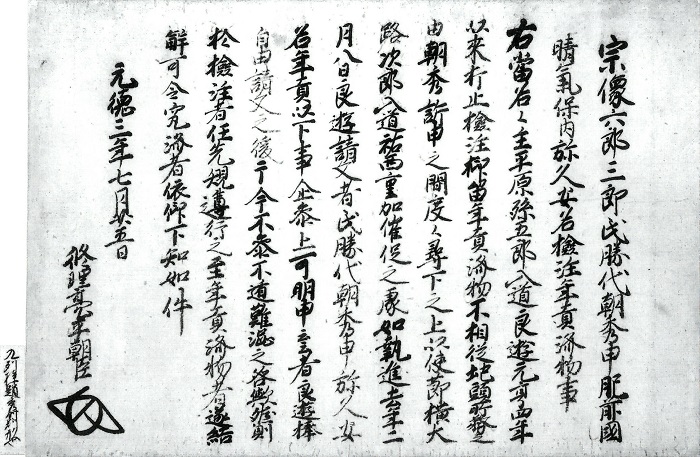 宗像六郎三郎氏勝代朝秀申肥前國
晴氣保内弥久女名檢注年貢済物事
右當名々主平原孫五郎入道良遊元亨四年
以来打止檢注抑留年貢済物不相従地頭所務之
由朝秀訴申之間度々尋下之上以使節横大
路次郎入道祐西重加催促之處如執進去年二
月八日良遊請文者氏勝代朝秀申弥久女
名年貢以下事企参上可明申云々者良遊捧
自由請文之後于今不参不遁難渋之咎歟然則
於檢注者任先規遵行之至年貢済物者遂結
解可令究済者依仰下知如件
元徳二年七月廿五日
修理亮平朝臣